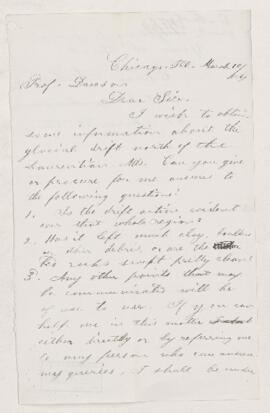 Chicago. Ill. March 10/
Prof. Dawson
Dear Sir.
I wish to obtain
some information about the
glacial drift north of the
Laurentian Mts. Can you give
or procure for me answers to
the following questions?
1. Is the drift action evident
over that whole region?
2. Has it left much clay, boulders
or other debris, or are the
rocks swept pretty clean?
3. Any other points that may
be communicated will be
of use to us. If you can
help me in this matter
either directly or by referring me
to any person who can answer
my queries, I shall be under